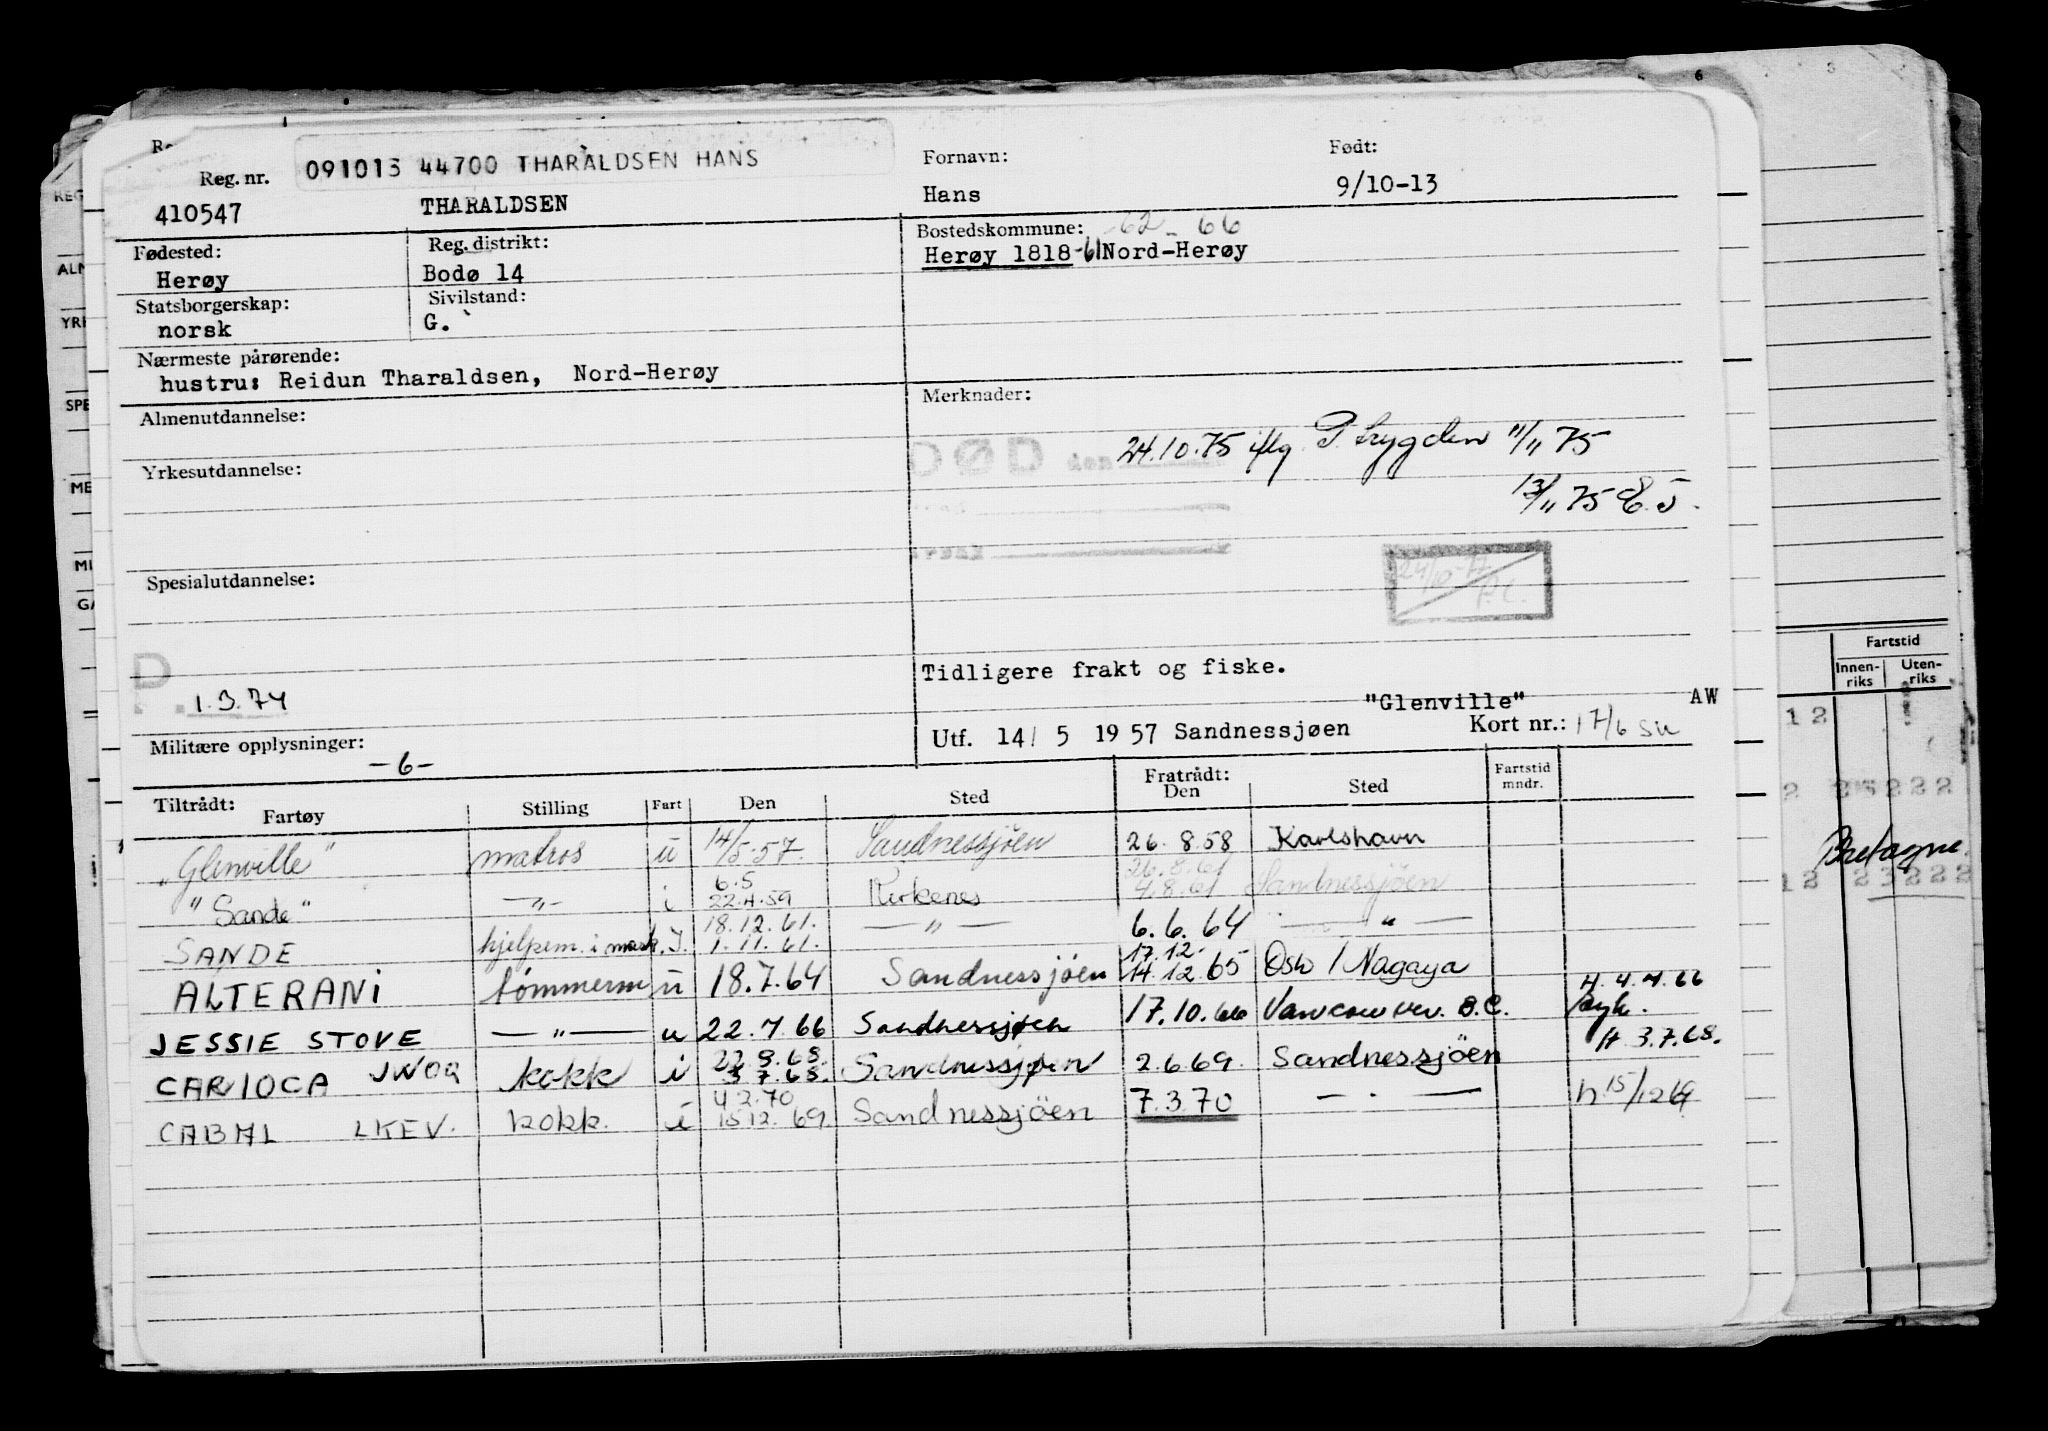 091013 44700 THARALDSEN HANS
Reg. nr.
Fornavn:
Født:
410547
THARALDSEN
Hans
9/10-13
Fødested:
Reg. distrikt:
Bostedskommune: -62- 66
Herøy
Bodø 14
Herøy 1818-61 Nord-Herøy
Statsborgerskap:
Sivilstand:
norsk
G.
Nærmeste pårørende:
hustru: Reidun Tharaldsen, Nord-Herøy
Almenutdannelse:
Merknader:
DØD den 24.10.75 iflg. P. trygden 11/11 75
Yrkesutdannelse:
13/11 75
Spesialutdannelse:
Tidligere frakt og fiske.
1.3.74
"Glenville"
AW
Militære opplysninger:
-6-
Utf. 14/ 5 1957 Sandnessjøen
Kort nr.: 17/6
Tiltrådt:
Fartøy
Stilling
Fart
Den
Sted
Fratrådt:
Den
Sted
Fartstid
mndr.
"Glenville" matros u 14/5-57. Sandnessjöen 26.8.58 Karlshavn
6.5 26.8.61
"Sande" -"- i 22.4.59 Kirkenes 4.8.61 Sandnessjöen
18.12.61.
SANDE hjelpem. i mask. I. 1.11.61. -"- 6.6.64 -"-
17.12.
ALTERANI tömmerm u 18.7.64 Sandnessjöen 14.12.65 Oslo / Nagaya
H. 4.4.66
JESSIE STOVE -"- u 22.4.66 Sandnessjøen 17.10.66 Vancouver. B.C. syk.
H. 3.7.68.
CARIOCA JWOQ kokk i 3.7.68. Sandnessjøen 2.6.69. Sandnessjöen
4.2.70
CABAL LKEV. kokk. i 15.12.69. Sandnessjöen 7.3.70 -"- h 15/12 69
Fartstid
Innen-
riks
Uten-
riks
12
2
222
Bretagne.
12 23222